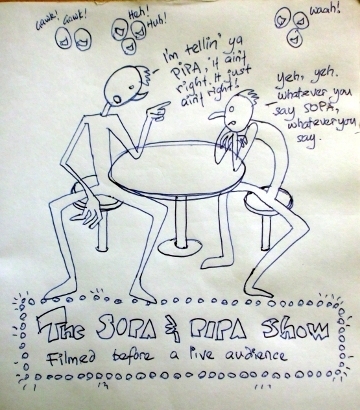 Gawk!
Gawk!
Heh!
Huh!
Waah!
I'm tellin' ya
PIPA, it ain't
right. It just
ain't right!
Yeh, yeh.
whatever you
say SOPA,
whatever you
say.
The SOPA & PIPA Show
Filmed before a live audience